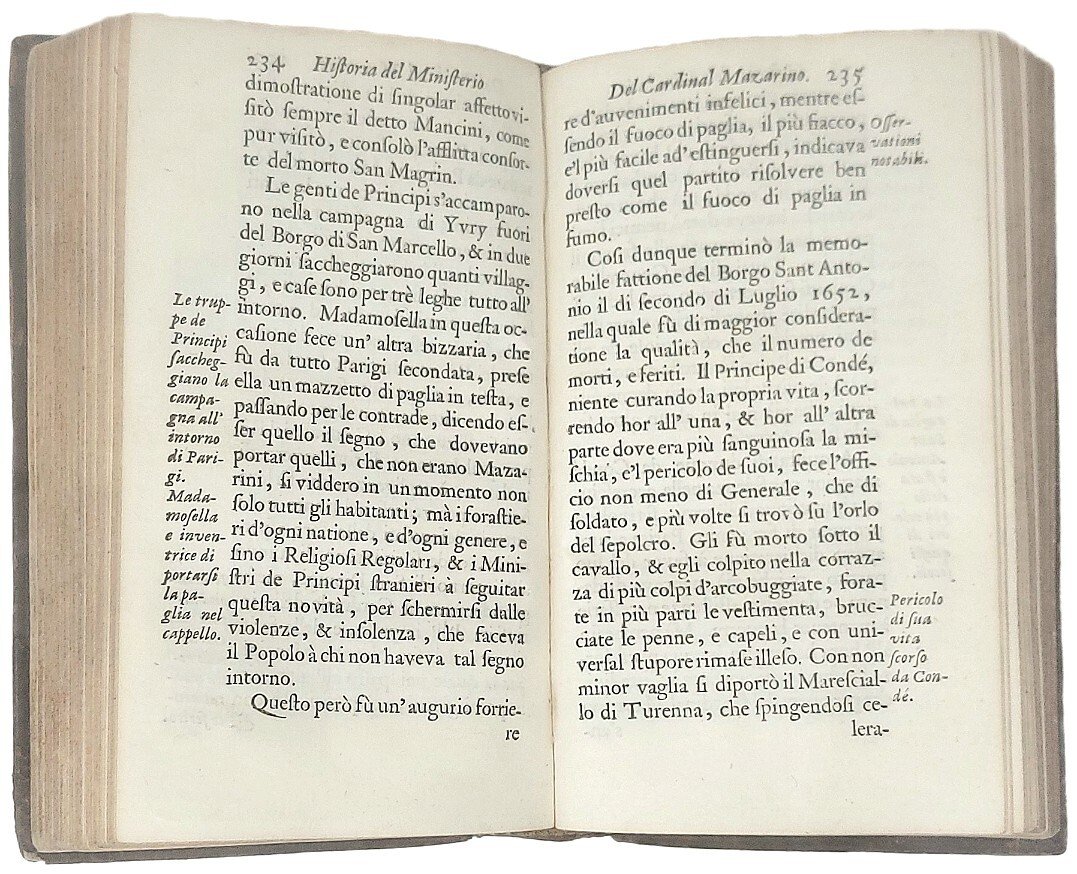 234 Hiſtoria del Miniſterio
dimoſtratione di ſingolar affetto vi-
ſitò ſempre il detto Mancini, come
pur viſitò, e conſolò l'afflitta conſor-
te del morto San Magrin.
Le genti de Principi s'accamparo-
no nella campagna di Yvry fuori
del Borgo di San Marcello, & in due
giorni ſaccheggiarono quanti villag-
gi, e caſe ſono per trè leghe tutto all'
intorno. Madamoſella in queſta oc-
caſione fece un' altra bizzaria, che
fù da tutto Parigi ſecondata, preſe
ella un mazzetto di paglia in teſta, e
paſſando per le contrade, dicendo eſ-
ſer quello il ſegno, che dovevano
portar quelli, che non erano Maza-
rini, ſi viddero in un momento non
ſolo tutti gli habitanti; mà i foraſtie-
ri d'ogni natione, e d'ogni genere, e
ſino i Religioſi Regolari, & i Mini-
ſtri de Principi ſtranieri à ſeguitar
queſta novità, per ſchermirſi dalle
violenze, & inſolenza, che faceva
il Popolo à chi non haveva tal ſegno
intorno.
Queſto però fù un' augurio forrie-
re
Le trup-
pe de
Principi
ſaccheg-
giano la
campa-
gna all'
intorno
di Pari-
gi.
Mada-
moſella
e inven-
trice di
portarſi
la pa-
glia nel
cappello.
Del Cardinal Mazarino. 235
re d'auvenimenti infelici, mentre eſ-
ſendo il fuoco di paglia, il più fiacco,
e'l più facile ad'eſtinguerſi, indicava
doverſi quel partito riſolvere ben
preſto come il fuoco di paglia in
fumo.
Coſi dunque terminò la memo-
rabile fattione del Borgo Sant Anto-
nio il di ſecondo di Luglio 1652,
nella quale fù di maggior conſidera-
tione la qualità, che il numero de
morti, e feriti. Il Principe di Condé,
niente curando la propria vita, ſcor-
rendo hor all' una, & hor all' altra
parte dove era più ſanguinoſa la mi-
ſchia, e'l pericolo de ſuoi, fece l'offi-
cio non meno di Generale, che di
ſoldato, e più volte ſi trovò ſu l'orlo
del ſepolcro. Gli fù morto ſotto il
cavallo, & egli colpito nella corraz-
za di più colpi d'arcobuggiate, fora-
te in più parti le veſtimenta, bruc-
ciate le penne, e capeli, e con uni-
verſal ſtupore rimaſe illeſo. Con non
minor vaglia ſi diportò il Mareſcial-
lo di Turenna, che ſpingendoſi ce-
lera-
Oſſer-
vationi
notabili.
Pericolo
di ſua
vita
ſcorſo
da Con-
dé.